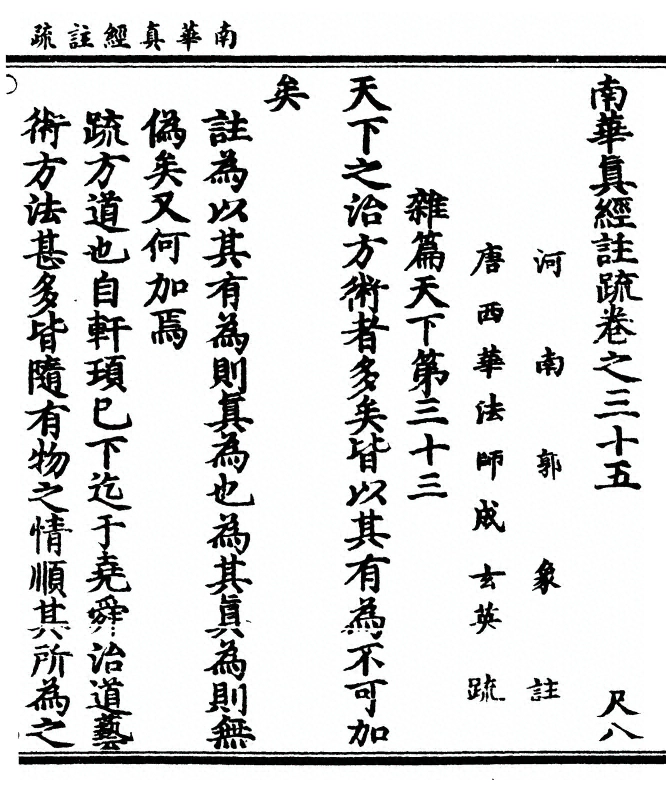 南華真經註疏
南華眞經註疏卷之三十五 尺八
河南郭象註
唐西華法師成玄英疏
雜篇天下第三十三
天下之治方術者多矣皆以其有為不可加
矣
註為以其有為則眞為也為其眞為則無
偽矣又何加焉
疏方道也自軒頊已下迄于堯舜治道藝
術方法甚多皆隨有物之情順其所為之